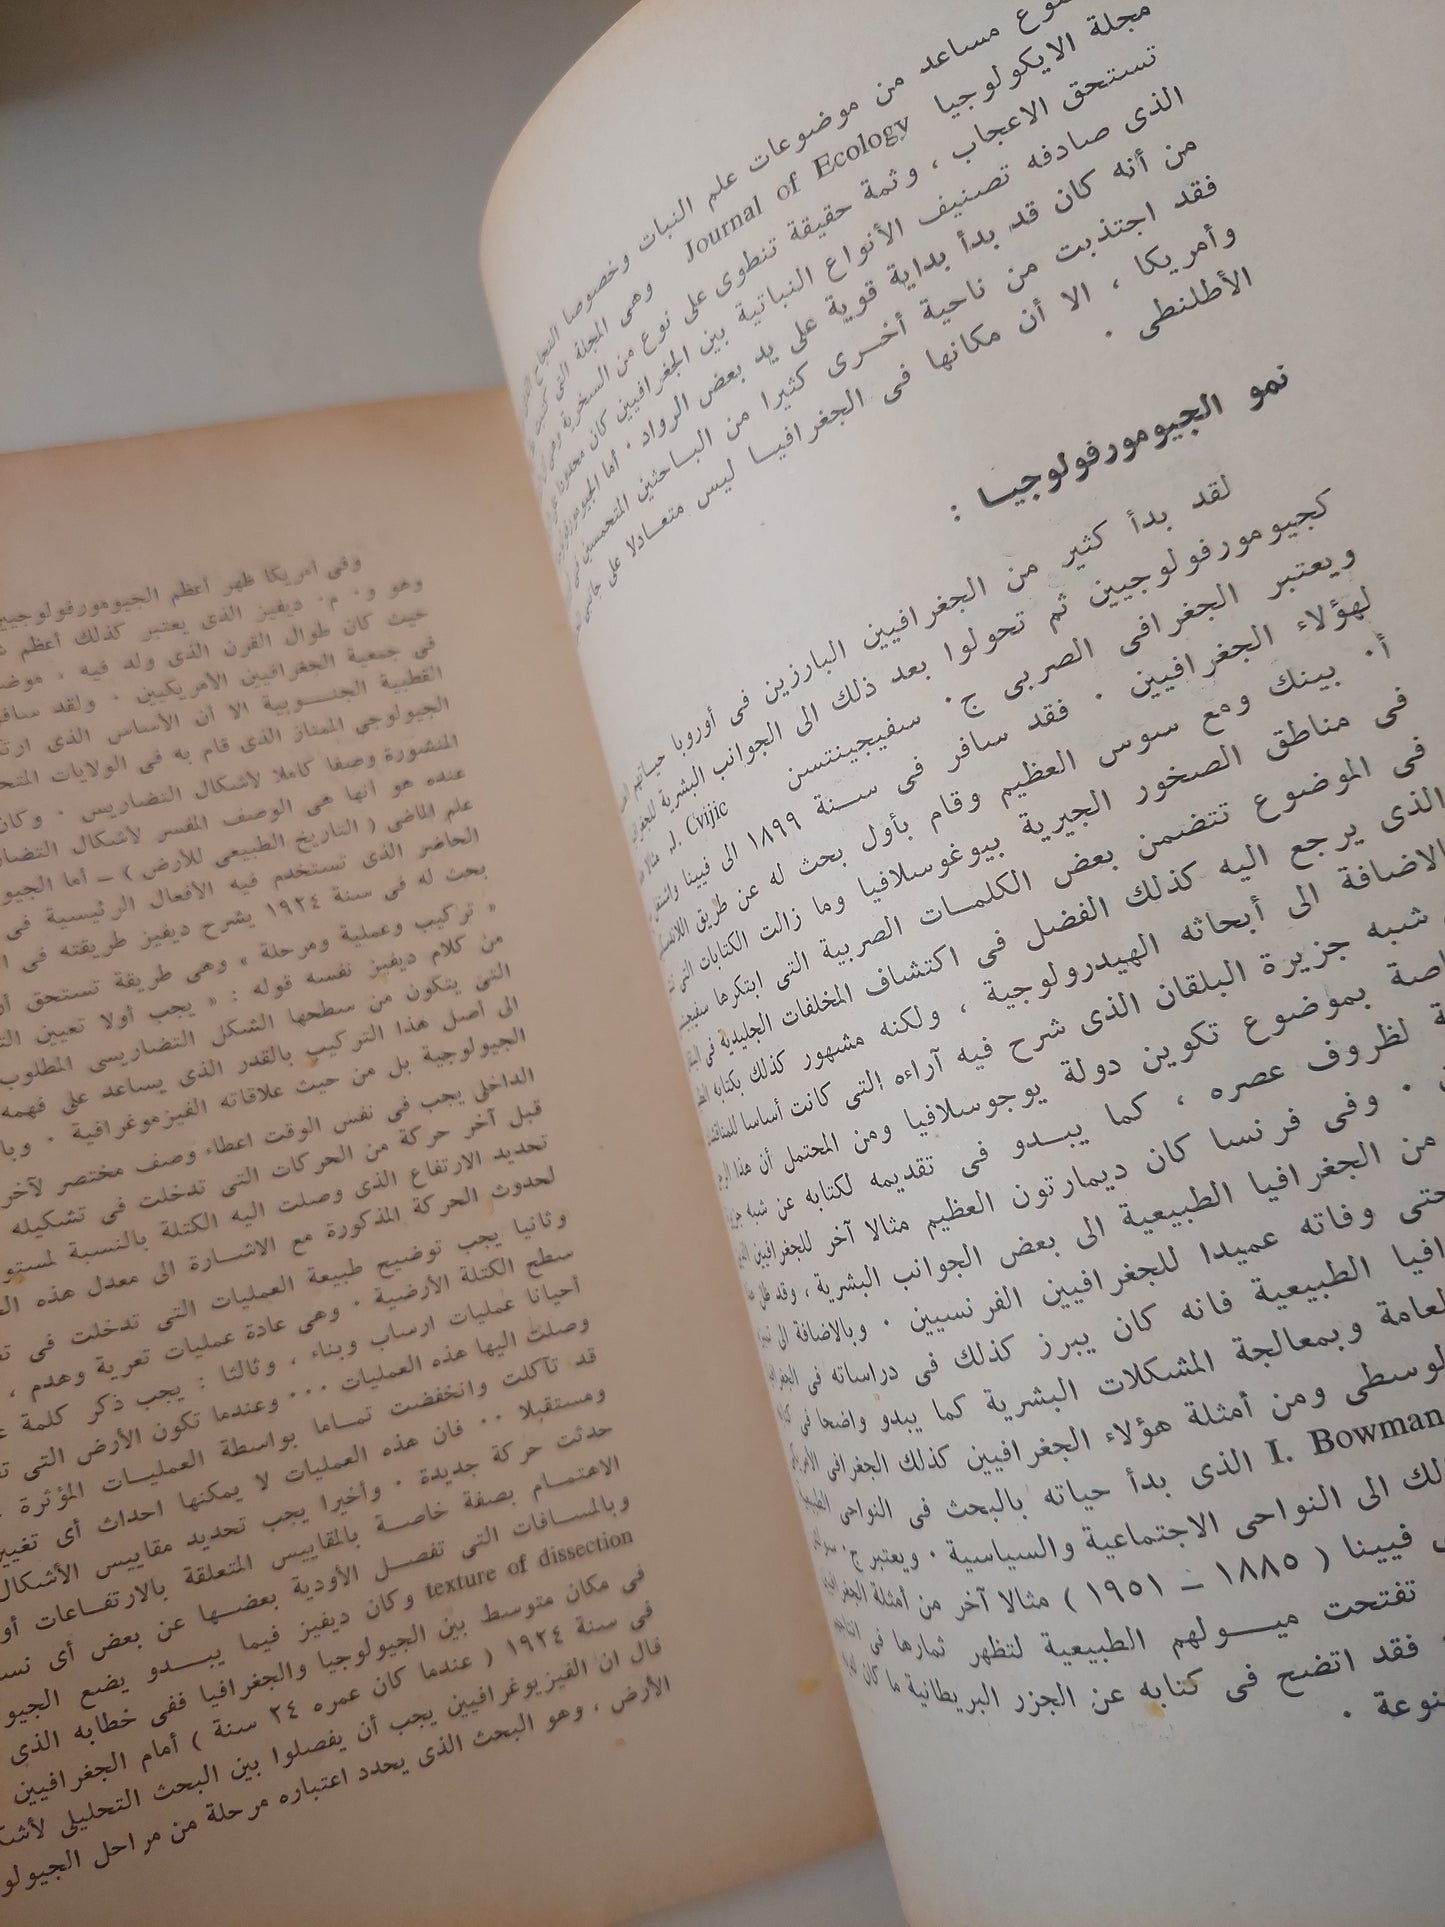 مساعد من موضوعات علم النبات وخصوصا النجاح
مجلة الايكولوجيا Journal of Ecology وهى المجلة التى
تستحق الاعجاب ، وثمة حقيقة تنطوى على نوع من السخرية
الذى صادفه تصنيف الأنواع النباتية بين الجغرافيين كان محدودا
من أنه كان قد بدأ بداية قوية على يد بعض الرواد . أما
فقد اجتذبت من ناحية أخرى كثيرا من الباحثين المتحمسين فى
وأمريكا ، الا أن مكانها فى الجغرافيا ليس متعادلا على
الأطلنطى .
نمو الجيومورفولوجيا :
لقد بدأ كثير من الجغرافيين البارزين فى أوروبا حياتهم
كجيومورفولوجيين ثم تحولوا بعد ذلك الى الجوانب البشرية
ويعتبر الجغرافى الصربى ج. سفيجينتسن J. Cvijic مثالا
لهؤلاء الجغرافيين . فقد سافر فى سنة ١٨٩٩ الى فيينا
أ. بينك ومع سوس العظيم وقام بأول بحث له عن طريق
فى مناطق الصخور الجيرية بيوغوسلافيا وما زالت الكتابات التى
فى الموضوع تتضمن بعض الكلمات الصربية التى ابتكرها
الذى يرجع اليه كذلك الفضل فى اكتشاف المخلفات الجليدية فى
الاضافة الى أبحاثه الهيدرولوجية ، ولكنه مشهور كذلك بكتابه
شبه جزيرة البلقان الذى شرح فيه آراءه التى كانت أساسا
بموضوع تكوين دولة يوجوسلافيا ومن المحتمل أن هذا
لظروف عصره ، كما يبدو فى تقديمه لكتابه عن شبه
. وفى فرنسا كان ديمارتون العظيم مثالا آخر للجغرافيين
من الجغرافيا الطبيعية الى بعض الجوانب البشرية ، وقد ظل
حتى وفاته عميدا للجغرافيين الفرنسيين . وبالاضافة الى
الطبيعية فانه كان يبرز كذلك فى دراساته فى
العامة وبمعالجة المشكلات البشرية كما يبدو واضحا فى
الوسطى ومن أمثلة هؤلاء الجغرافيين كذلك الجغرافى
I. Bowman الذى بدأ حياته بالبحث فى النواحى
الى النواحى الاجتماعية والسياسية . ويعتبر ج.
فيينا ( ١٨٨٥ ـ ١٩٥١ ) مثالا آخر من أمثلة
تفتحت ميولهم الطبيعية لتظهر ثمارها فى
فقد اتضح فى كتابه عن الجزر البريطانية ما كان
وفى أمريكا ظهر أعظم الجيومورفولوجيين
وهو و. م. ديفيز الذى يعتبر كذلك أعظم
حيث كان طوال القرن الذى ولد فيه ،
فى جمعية الجغرافيين الأمريكيين . ولقد
القطبية الجنوبية الا أن الأساس الذى
الجيولوجى الممتاز الذى قام به فى الولايات
المنشورة وصفا كاملا لأشكال التضاريس . وكان
عنده هو انها هى الوصف المفسر لأشكال
علم الماضى ( التاريخ الطبيعى للأرض ) ـ أما
الحاضر الذى تستخدم فيه الأفعال الرئيسية فى
بحث له فى سنة ١٩٢٤ يشرح ديفيز طريقته فى
« تركيب وعملية ومرحلة » وهى طريقة تستحق
من كلام ديفيز نفسه قوله : « يجب أولا تعيين
التى يتكون من سطحها الشكل التضاريسى المطلوب
الى أصل هذا التركيب بالقدر الذى يساعد على فهمه
الجيولوجية بل من حيث علاقاته الفيزموغرافية .
الداخلى يجب فى نفس الوقت اعطاء وصف مختصر لآخر
قبل آخر حركة من الحركات التى تدخلت فى تشكيله
تحديد الارتفاع الذى وصلت اليه الكتلة بالنسبة
لحدوث الحركة المذكورة مع الاشارة الى معدل هذه
وثانيا يجب توضيح طبيعة العمليات التى تدخلت فى
سطح الكتلة الأرضية . وهى عادة عمليات تعرية وهدم ،
أحيانا عمليات ارساب وبناء ، وثالثا : يجب ذكر كلمة
وصلت اليها هذه العمليات ... وعندما تكون الأرض التى
قد تآكلت وانخفضت تماما بواسطة العمليات المؤثرة
ومستقبلا .. فان هذه العمليات لا يمكنها احداث أى
حدثت حركة جديدة . وأخيرا يجب تحديد مقاييس
الاهتمام بصفة خاصة بالمقاييس المتعلقة بالارتفاعات
وبالمسافات التى تفصل الأودية بعضها عن بعض أى
texture of dissection وكان ديفيز فيما يبدو يضع
فى مكان متوسط بين الجيولوجيا والجغرافيا ففى خطابه الذى
فى سنة ١٩٢٤ ( عندما كان عمره ٢٤ سنة ) أمام الجغرافيين
قال ان الفيزيوغرافيين يجب أن يفصلوا بين البحث التحليلى
الأرض ، وهو البحث الذى يحدد اعتباره مرحلة من مراحل